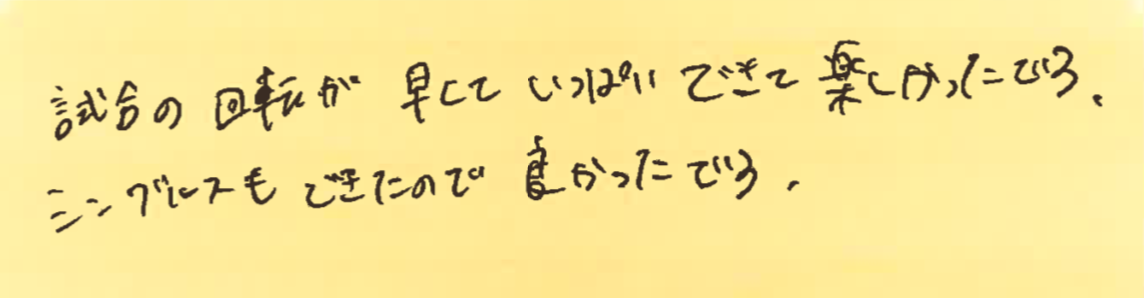 試合の回転が早くていっぱいできて楽しかったです。
シングルスもできたので良かったです。